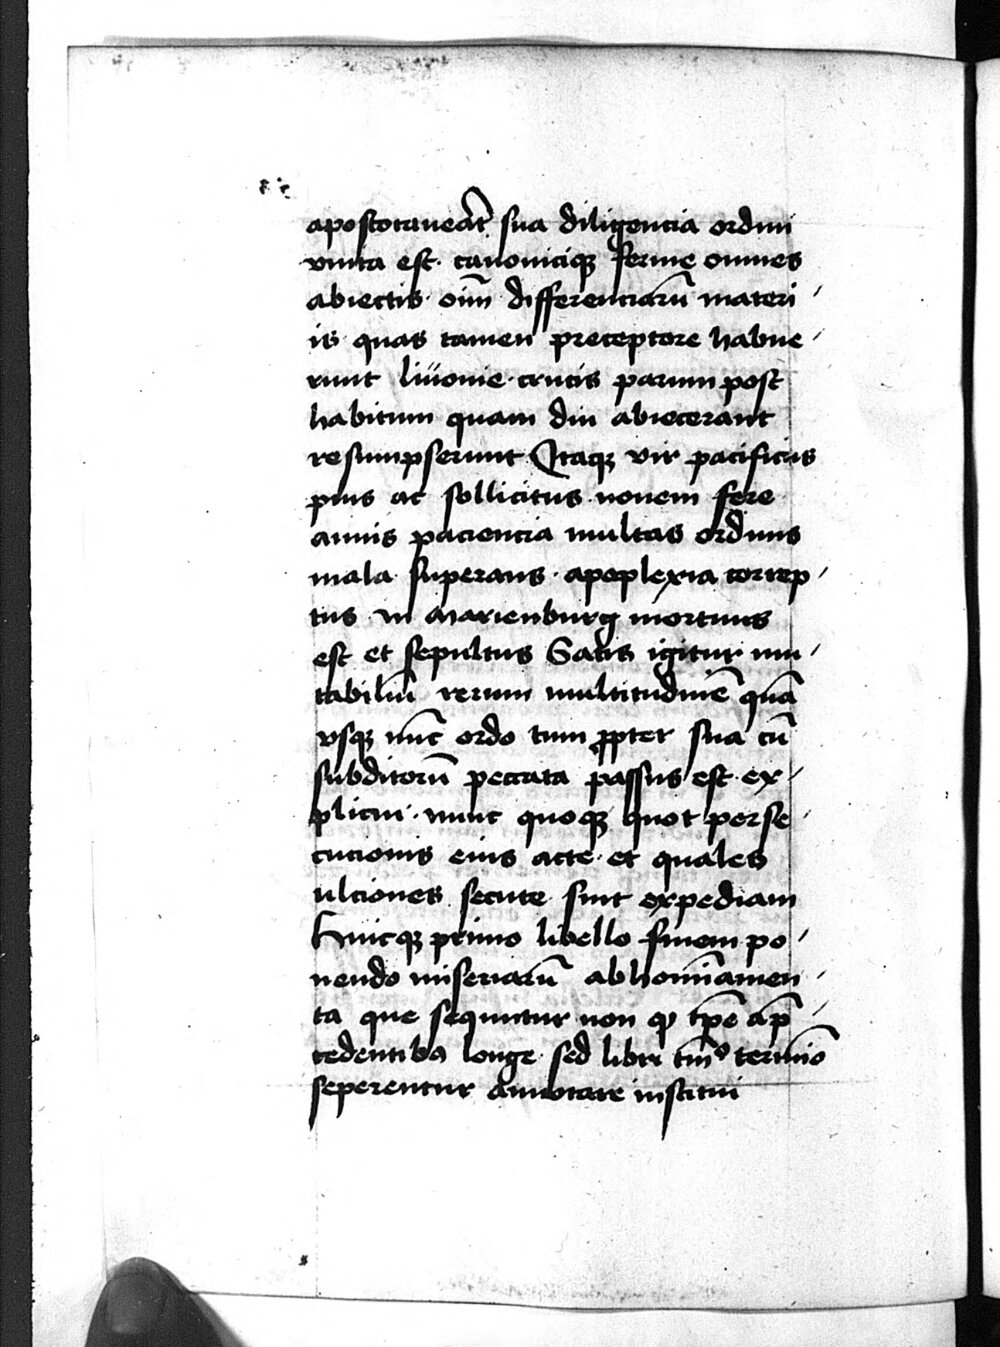 apostotaueāt sua diligencia ordini
vnita est. canoniciqꝫ ferme omnes
abiectis oīm differenciarū materi
is quas tamen preceptore habue
runt liuonie crucis parum post
habitum quam diu abiecerant
resumpserunt Itaqꝫ vir pacificus
pius ac sollicitus nouem fere
annis paciencia multas ordinis
mala superans apoplexia correp
tus in marienburg mortuus
est et sepultus Satis igitur mu
tabiliū rerum multitudinē quā
vsqꝫ nūc ordo tum ꝓpter sua cū
subditorū peccata passus est ex
plicui. nunc quoqꝫ quot perse
cucionis eius acte et quales
ulciones secute sint expediam
Huicqꝫ primo libello finem po
nendo miseriarū abhominamen
ta que sequntur non ꝙ tp̄e a p̄
cedentibꝰ longe sed libri tm̄º termīo
seperentur annotare institui